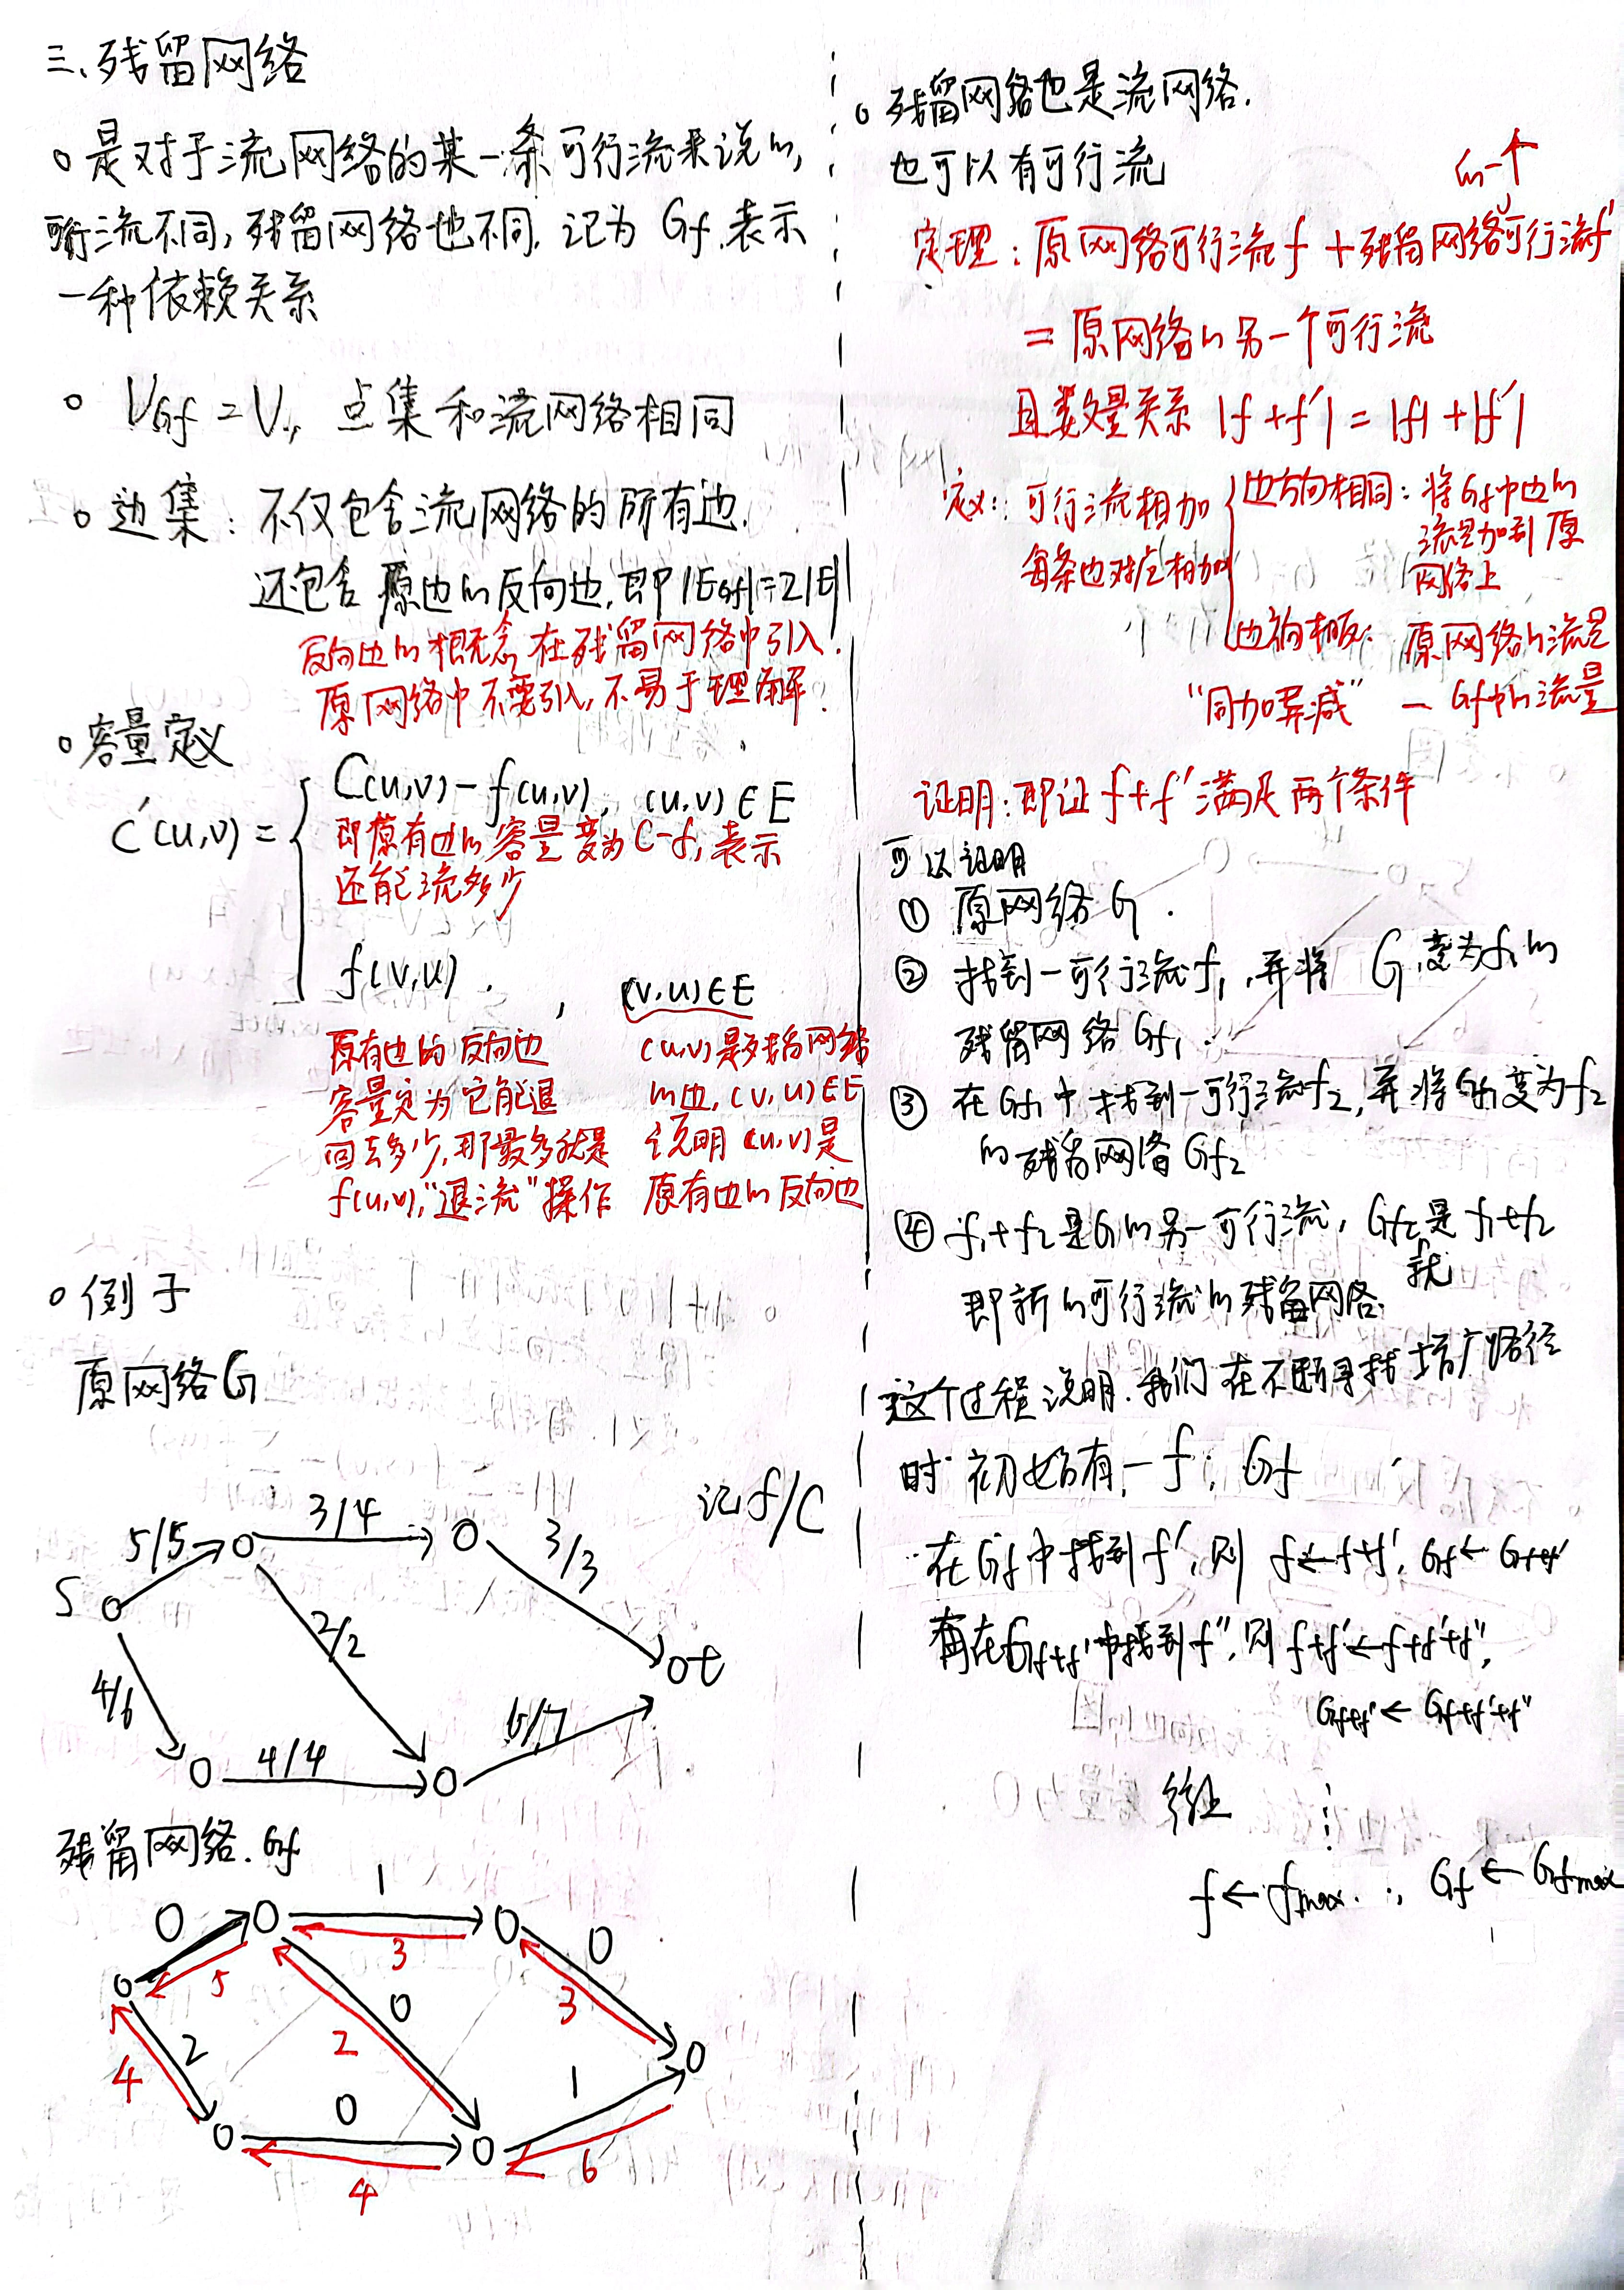 三、残留网络
○ 是对于流网络的某一条可行流来说的,
可行流不同, 残留网络也不同. 记为 Gf. 表示
一种依赖关系
○ VGf = V, 点集和流网络相同
○ 边集: 不仅包含流网络的所有边.
还包含 原边的反向边, 即 |EGf|=2|E|
反向边的概念在残留网络中引入!
原网络中不要引入, 不易于理解!
○ 容量定义
C'(u,v) = { C(u,v) - f(u,v), (u,v)∈E
即原有边的容量变为C-f, 表示
还能流多少
f(v,u). , (v,u)∈E
原有边的反向边
容量定为它能退
回去多少, 那最多就是
f(u,v), "退流"操作
(u,v)是残留网络
的边, (v,u)∈E
说明 (u,v)是
原有边的反向边
○ 例子
原网络G
记f/C
5/5
3/4
3/3
S
2/2
t
4/6
6/7
4/4
残留网络. Gf
0
1
5
3
0
0
3
2
2
4
1
0
6
4
○ 残留网络也是流网络.
也可以有可行流
的一个
定理: 原网络可行流f + 残留网络可行流f'
= 原网络的另一个可行流
且数量关系 |f+f'| = |f|+|f'|
定义: 可行流相加
每条边对应相加
边方向相同: 将Gf中边的
流量加到原
网络上
边方向相反: 原网络的流量
"同加异减" - Gf中的流量
证明: 即证 f+f' 满足两个条件
可以证明
① 原网络G.
② 找到一可行流f1, 并将 G 变为f1的
残留网络Gf1.
③ 在Gf1中找到一可行流f2, 并将Gf1变为f2
的残留网络Gf2
④ f1+f2是G的另一可行流, Gf2就是 f1+f2
即新的可行流的残留网络.
这个过程说明. 我们在不断寻找增广路径
时 初始有一f, Gf
在Gf中找到f', 则 f←f+f', Gf←Gf+f'
再在Gf+f'中找到f'', 则f+f'←f+f'+f'',
Gf+f'←Gf+f'+f''
⋮
f←fmax, Gf←Gfmax